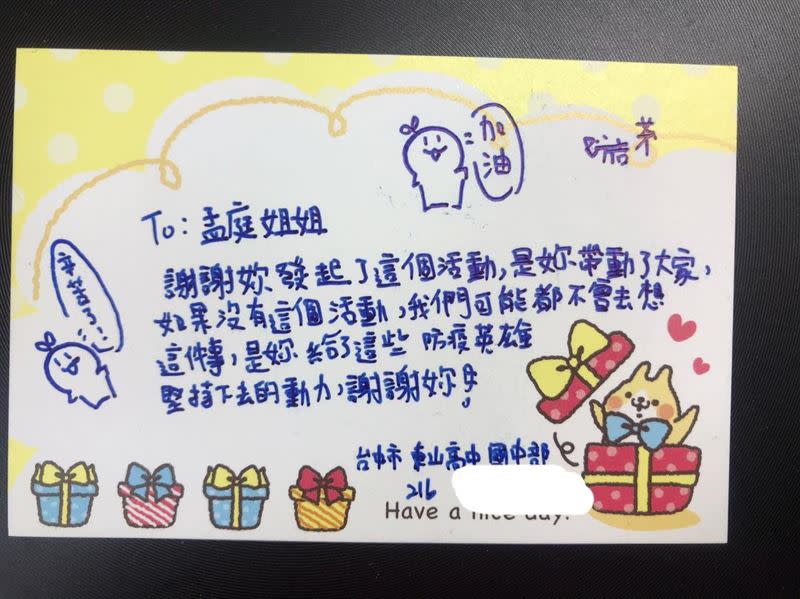 加油
To: 孟庭姐姐
辛苦了!
謝謝妳發起了這個活動,是妳帶動了大家,
如果沒有這個活動,我們可能都不會去想
這件事,是妳給了這些防疫英雄
堅持下去的動力,謝謝妳!
台中市 東山高中 國中部
216
Have a nice day.